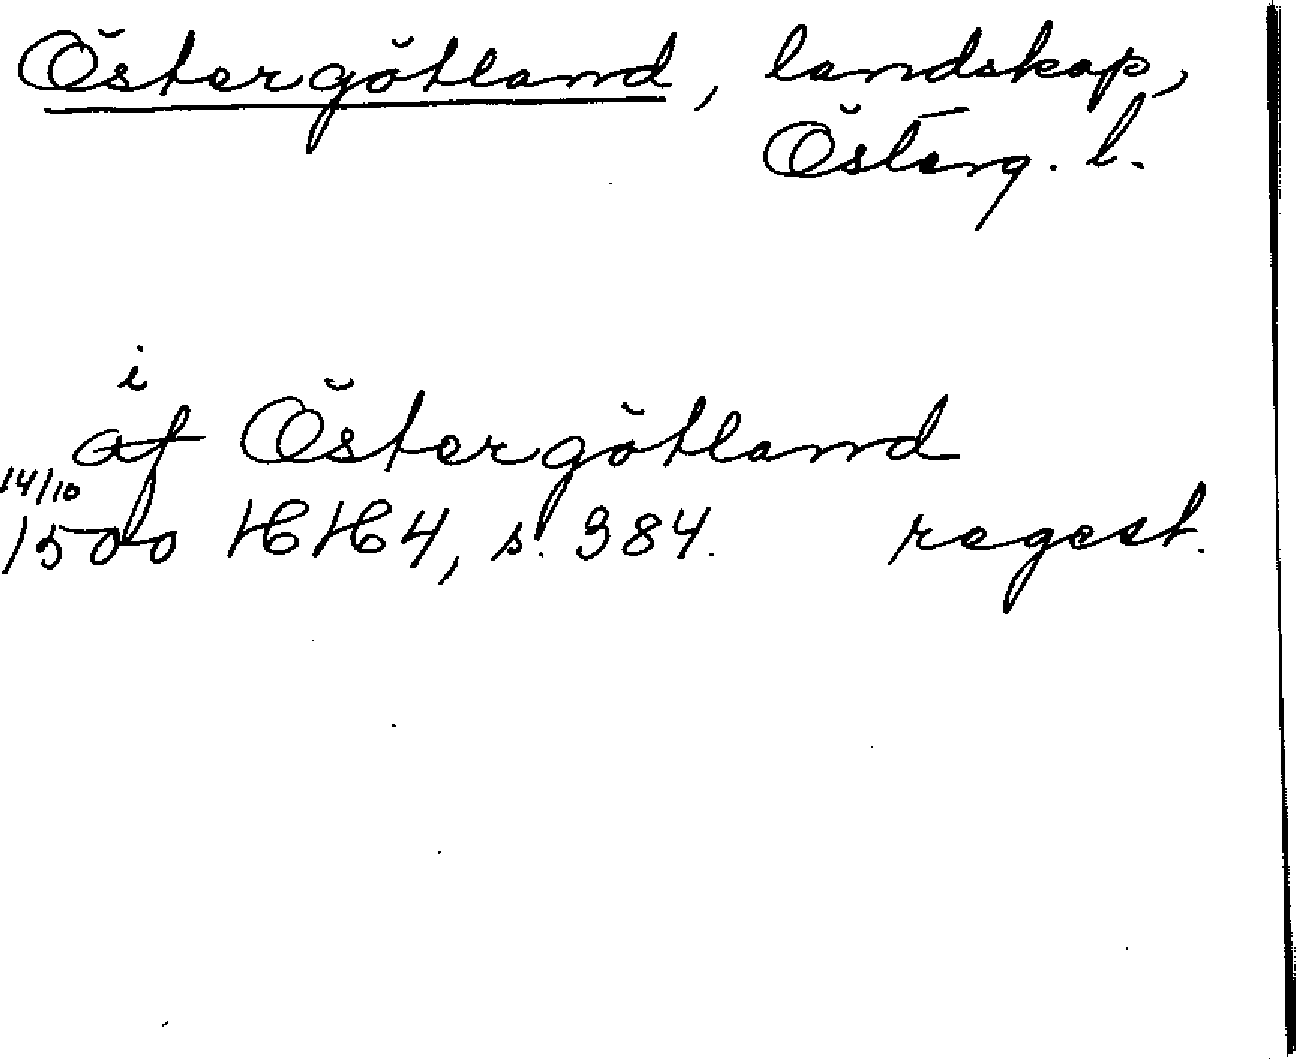 Östergötland, landskap,
Österg. l.
i
af Östergötland
14/10
1500 HH 4, s. 384. regest.